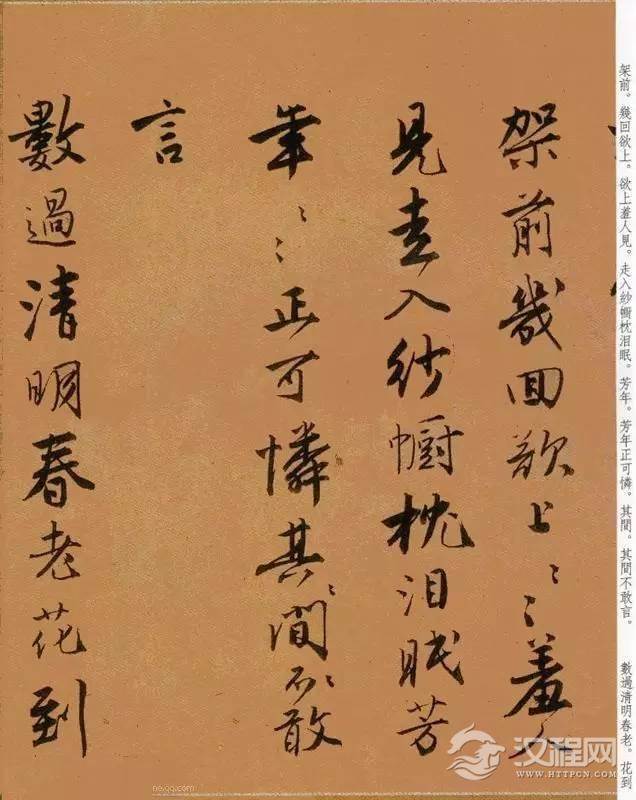 架前。幾回欲上。欲上羞人見。走入紗幮枕泪眠。芳年。芳年正可憐。其間。其間不敢言。　數過清明春老。花到
架前幾回欲上〻〻羞人
見走入紗幮枕泪眠芳
年〻〻正可憐其〻間〻不敢
言
數過清明春老花到
汉程网
WWW.HTTPCN.COM